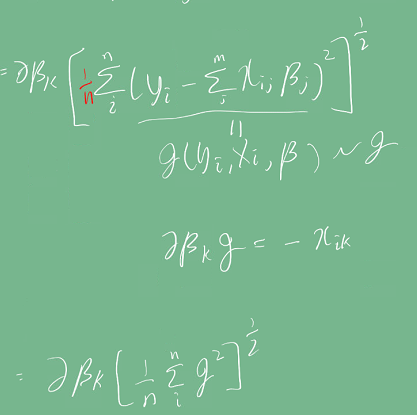 = ∂β_k [ 1/n Σ_i^n (y_i - Σ_j^m x_ij β_j)^2 ]^(1/2)
||
g(y_i, x_i, β) ~ g
∂β_k g = - x_ik
= ∂β_k [ 1/n Σ_i^n g^2 ]^(1/2)